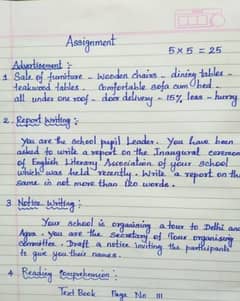 Assignment
5 x 5 = 25
Advertisement :-
1. Sale of furniture - wooden chairs - dining tables -
teakwood tables. Comfortable sofa cum bed -
all under one roof - door delivery - 15% less - hurry
2. Report Writing :-
You are the school pupil Leader. You have been
asked to write a report on the Inaugural ceremon
of English Literary Association of your school
which was held recently. Write a report on the
same in not more than 120 words.
3. Notice Writing :-
Your school is organising a tour to Delhi and
Agra. you are the secretary of Tour organising
committee. Draft a notice inviting the participants
to give you their names.
4 Reading Comprehension :
Text Book Page No 111